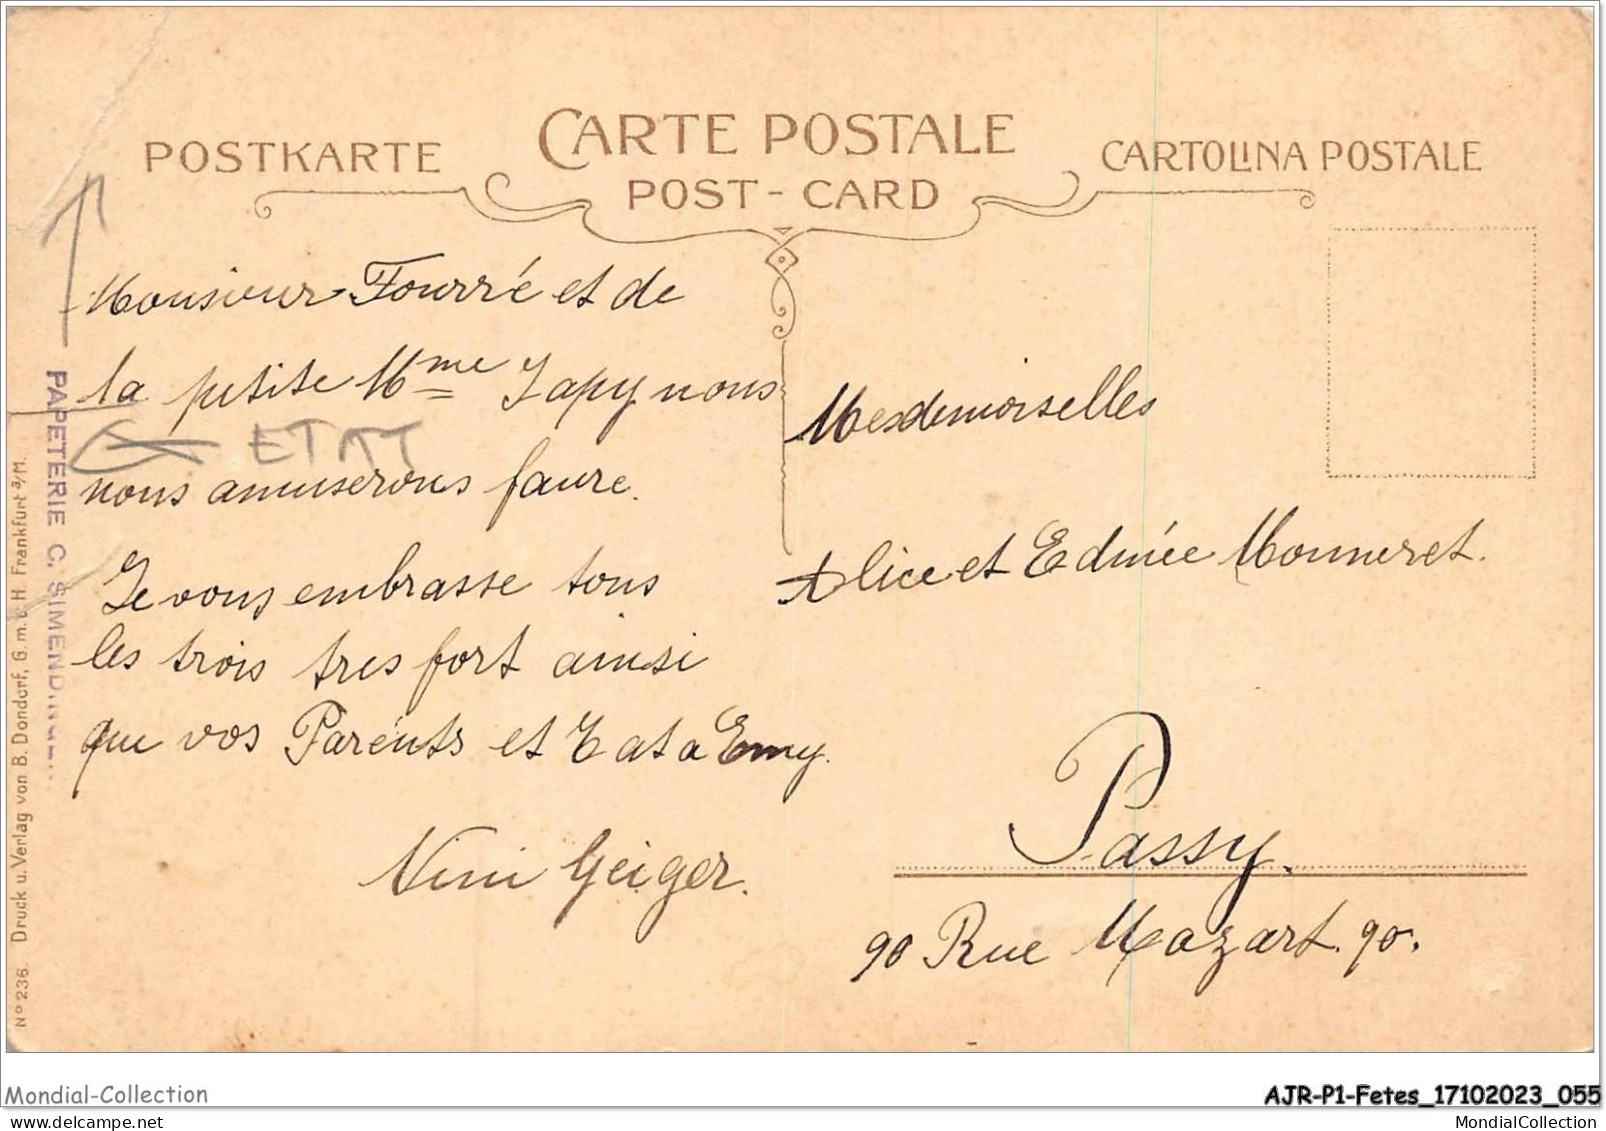 POSTKARTE
CARTE POSTALE
POST-CARD
CARTOLINA POSTALE
Monsieur Fourré et de
la petite Mme Japy nous
nous amuserons faure.
Je vous embrasse tous
les trois tres fort ainsi
que vos Parents et Tata Emy.
Nini Geiger.
ETAT
Mesdemoiselles
Alice et Edmée Monneret.
Passy.
90 Rue Mozart. 90.
PAPETERIE C. SIMENDINGE...
Nº 236. Druck u. Verlag von B. Dondorf, G.m.b.H. Frankfurt a/M.
Mondial-Collection
AJR-P1-Fetes_17102023_055
www.delcampe.net
MondialCollection